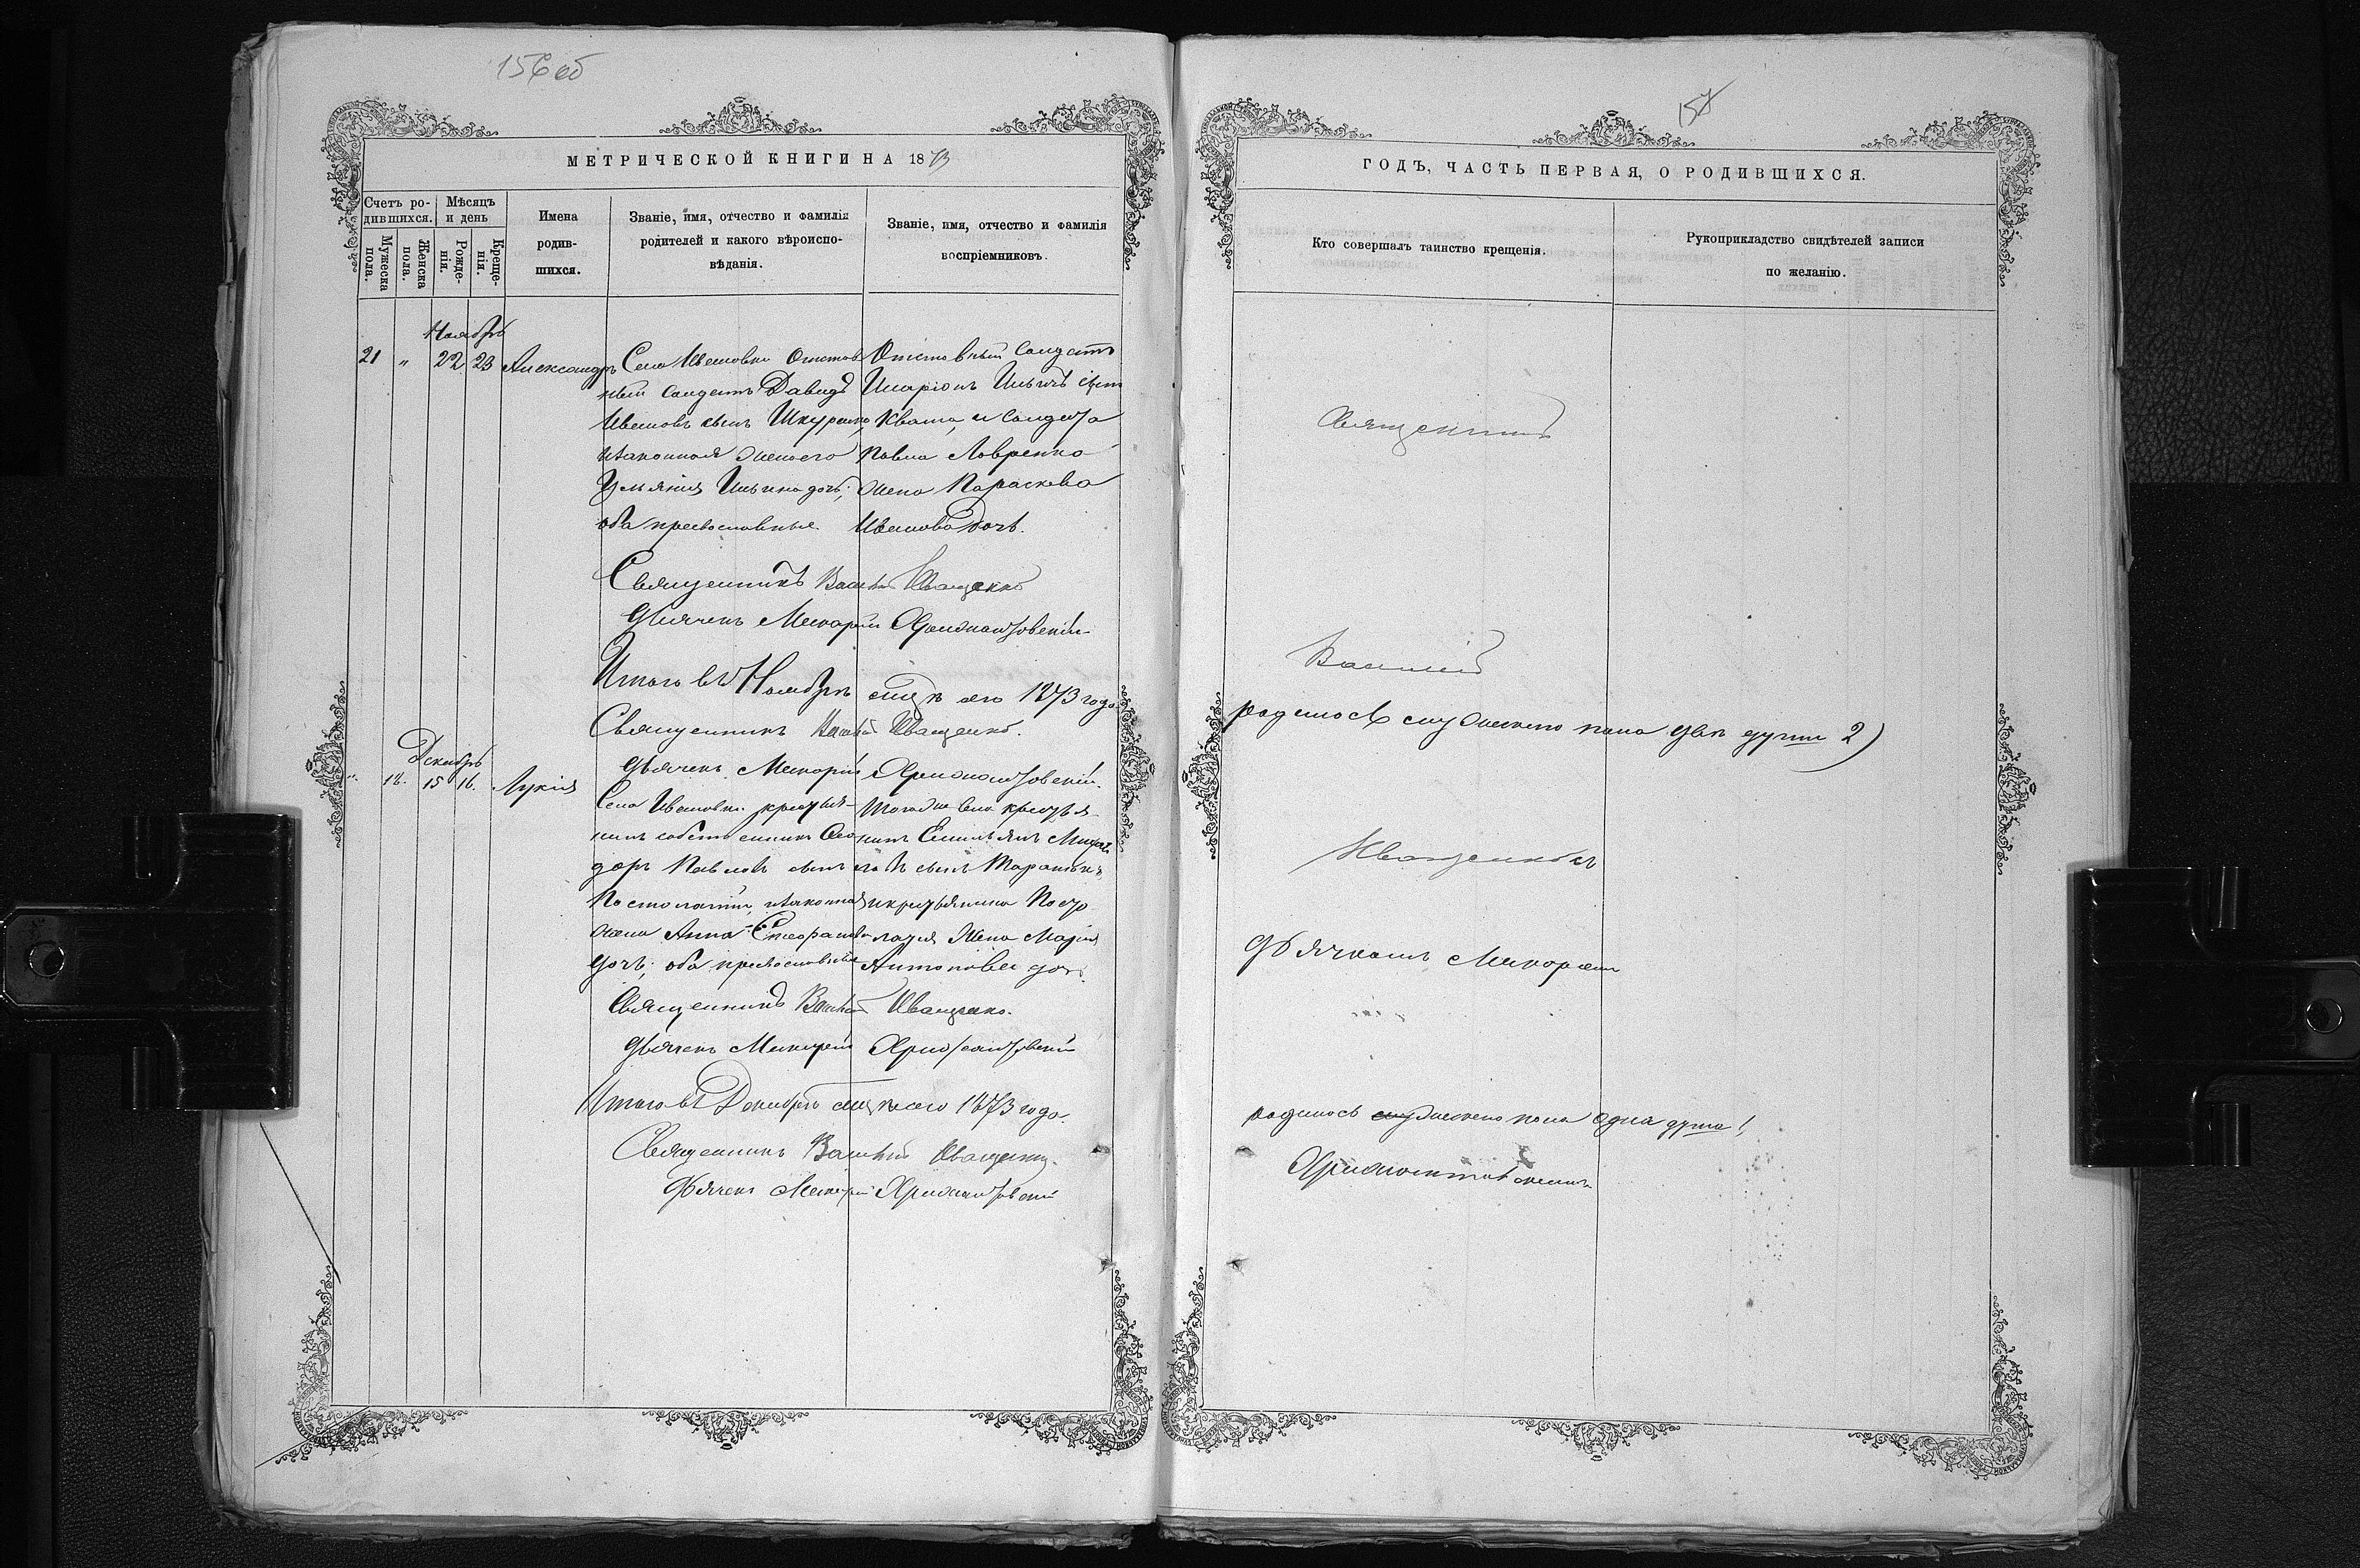 156 об
МЕТРИЧЕСКОЙ КНИГИ НА 1873
Счетъ ро-
дившихся.
Мѣсяцъ
и день
Мужеска
пола.
Женска
пола.
Рожде-
нія.
Креще-
нія.
Имена
родив-
шихся.
Званіе, имя, отчество и фамилія
родителей и какого вѣроиспо-
вѣданія.
Званіе, имя, отчество и фамилія
воспріемниковъ.
Ноябрь
21 „ 22 23 Александръ
Села Ивановки Отстав
ный солдатъ Давидъ
Ивановъ сынъ Шкуренко,
и законная жена его
Ульянія Ильина дочь;
оба православные.
Отставный Солдатъ
Иларіонъ Ильичъ сын
Кваша, и Солдата
Павла Лавренка
жена Параскева
Иванова дочь.
Священникъ Василій Иващенко
Дьячекъ Макарій
Итого въ Ноябрѣ мѣ 1873 года
Священникъ Василій Иващенко.
Дьячекъ Макарій
Декабрь
„ 12. 15 16. Лукія
Села Ивановки крестья-
нинъ собственникъ Ѳео
доръ Павловъ сынъ
законная
жена Анна Стефанова
дочь; оба православные
Того же села крестья
нинъ Емильянъ Михай
ловъ сынъ
жена Марія
Антонова дочь.
Священникъ Василій Иващенко.
Дьячекъ Макарій
Итого въ Декабрѣ 1873 года.
Священникъ Василій Иващенко.
Дьячекъ Макарій
157
ГОДЪ, ЧАСТЬ ПЕРВАЯ, О РОДИВШИХСЯ.
Кто совершалъ таинство крещенія.
Рукоприкладство свидѣтелей записи
по желанію.
Священникъ
Василій
родилось мужеска пола двѣ души 2)
Иващенко съ
Дьячкомъ Макаріем
родилось женска пола одна душа 1,